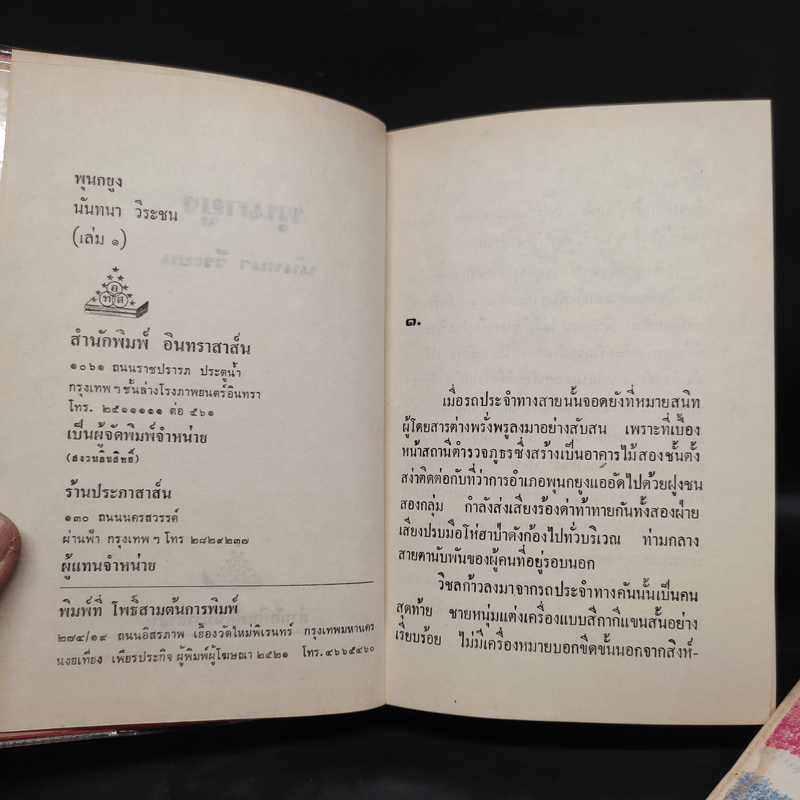 พุนกยูง
นันทนา วีระชน
(เล่ม ๑)
อ
ท ส
สำนักพิมพ์ อินทราสาส์น
๑๐๖๑ ถนนราชปรารภ ประตูน้ำ
กรุงเทพ ฯ ชั้นล่างโรงภาพยนตร์อินทรา
โทร. ๒๕๑๑๑๑๑ ต่อ ๕๖๑
เป็นผู้จัดพิมพ์จำหน่าย
(สงวนลิขสิทธิ์)
ร้านประภาสาส์น
๑๓๐ ถนนนครสวรรค์
ผ่านฟ้า กรุงเทพ ฯ โทร ๒๘๒๙๒๓๗
ผู้แทนจำหน่าย
พิมพ์ที่ โพธิ์สามต้นการพิมพ์
๒๗๔/๑๙ ถนนอิสรภาพ เยื้องวัดใหม่พิเรนทร์ กรุงเทพมหานคร
นงยเที่ยง เพียรประกิจ ผู้พิมพ์ผู้โฆษณา ๒๕๒๑ โทร. ๔๖๖๕๔๖๐
๑.
เมื่อรถประจำทางสายนั้นจอดยังที่หมายสนิท
ผู้โดยสารต่างพรั่งพรูลงมาอย่างสับสน เพราะที่เบื้อง
หน้าสถานีตำรวจภูธรซึ่งสร้างเป็นอาคารไม้สองชั้นตั้ง
สง่าติดต่อกับที่ว่าการอำเภอพุนกยูงแออัดไปด้วยฝูงชน
สองกลุ่ม กำลังส่งเสียงร้องด่าท้าทายกันทั้งสองฝ่าย
เสียงปรบมือโห่ฮาป่าดังก้องไปทั่วบริเวณ ท่ามกลาง
สายตานับพันของผู้คนที่อยู่รอบนอก
วิชลก้าวลงมาจากรถประจำทางคันนั้นเป็นคน
สุดท้าย ชายหนุ่มแต่งเครื่องแบบสีกากีแขนสั้นอย่าง
เรียบร้อย ไม่มีเครื่องหมายบอกขีดขั้นนอกจากสิงห์-